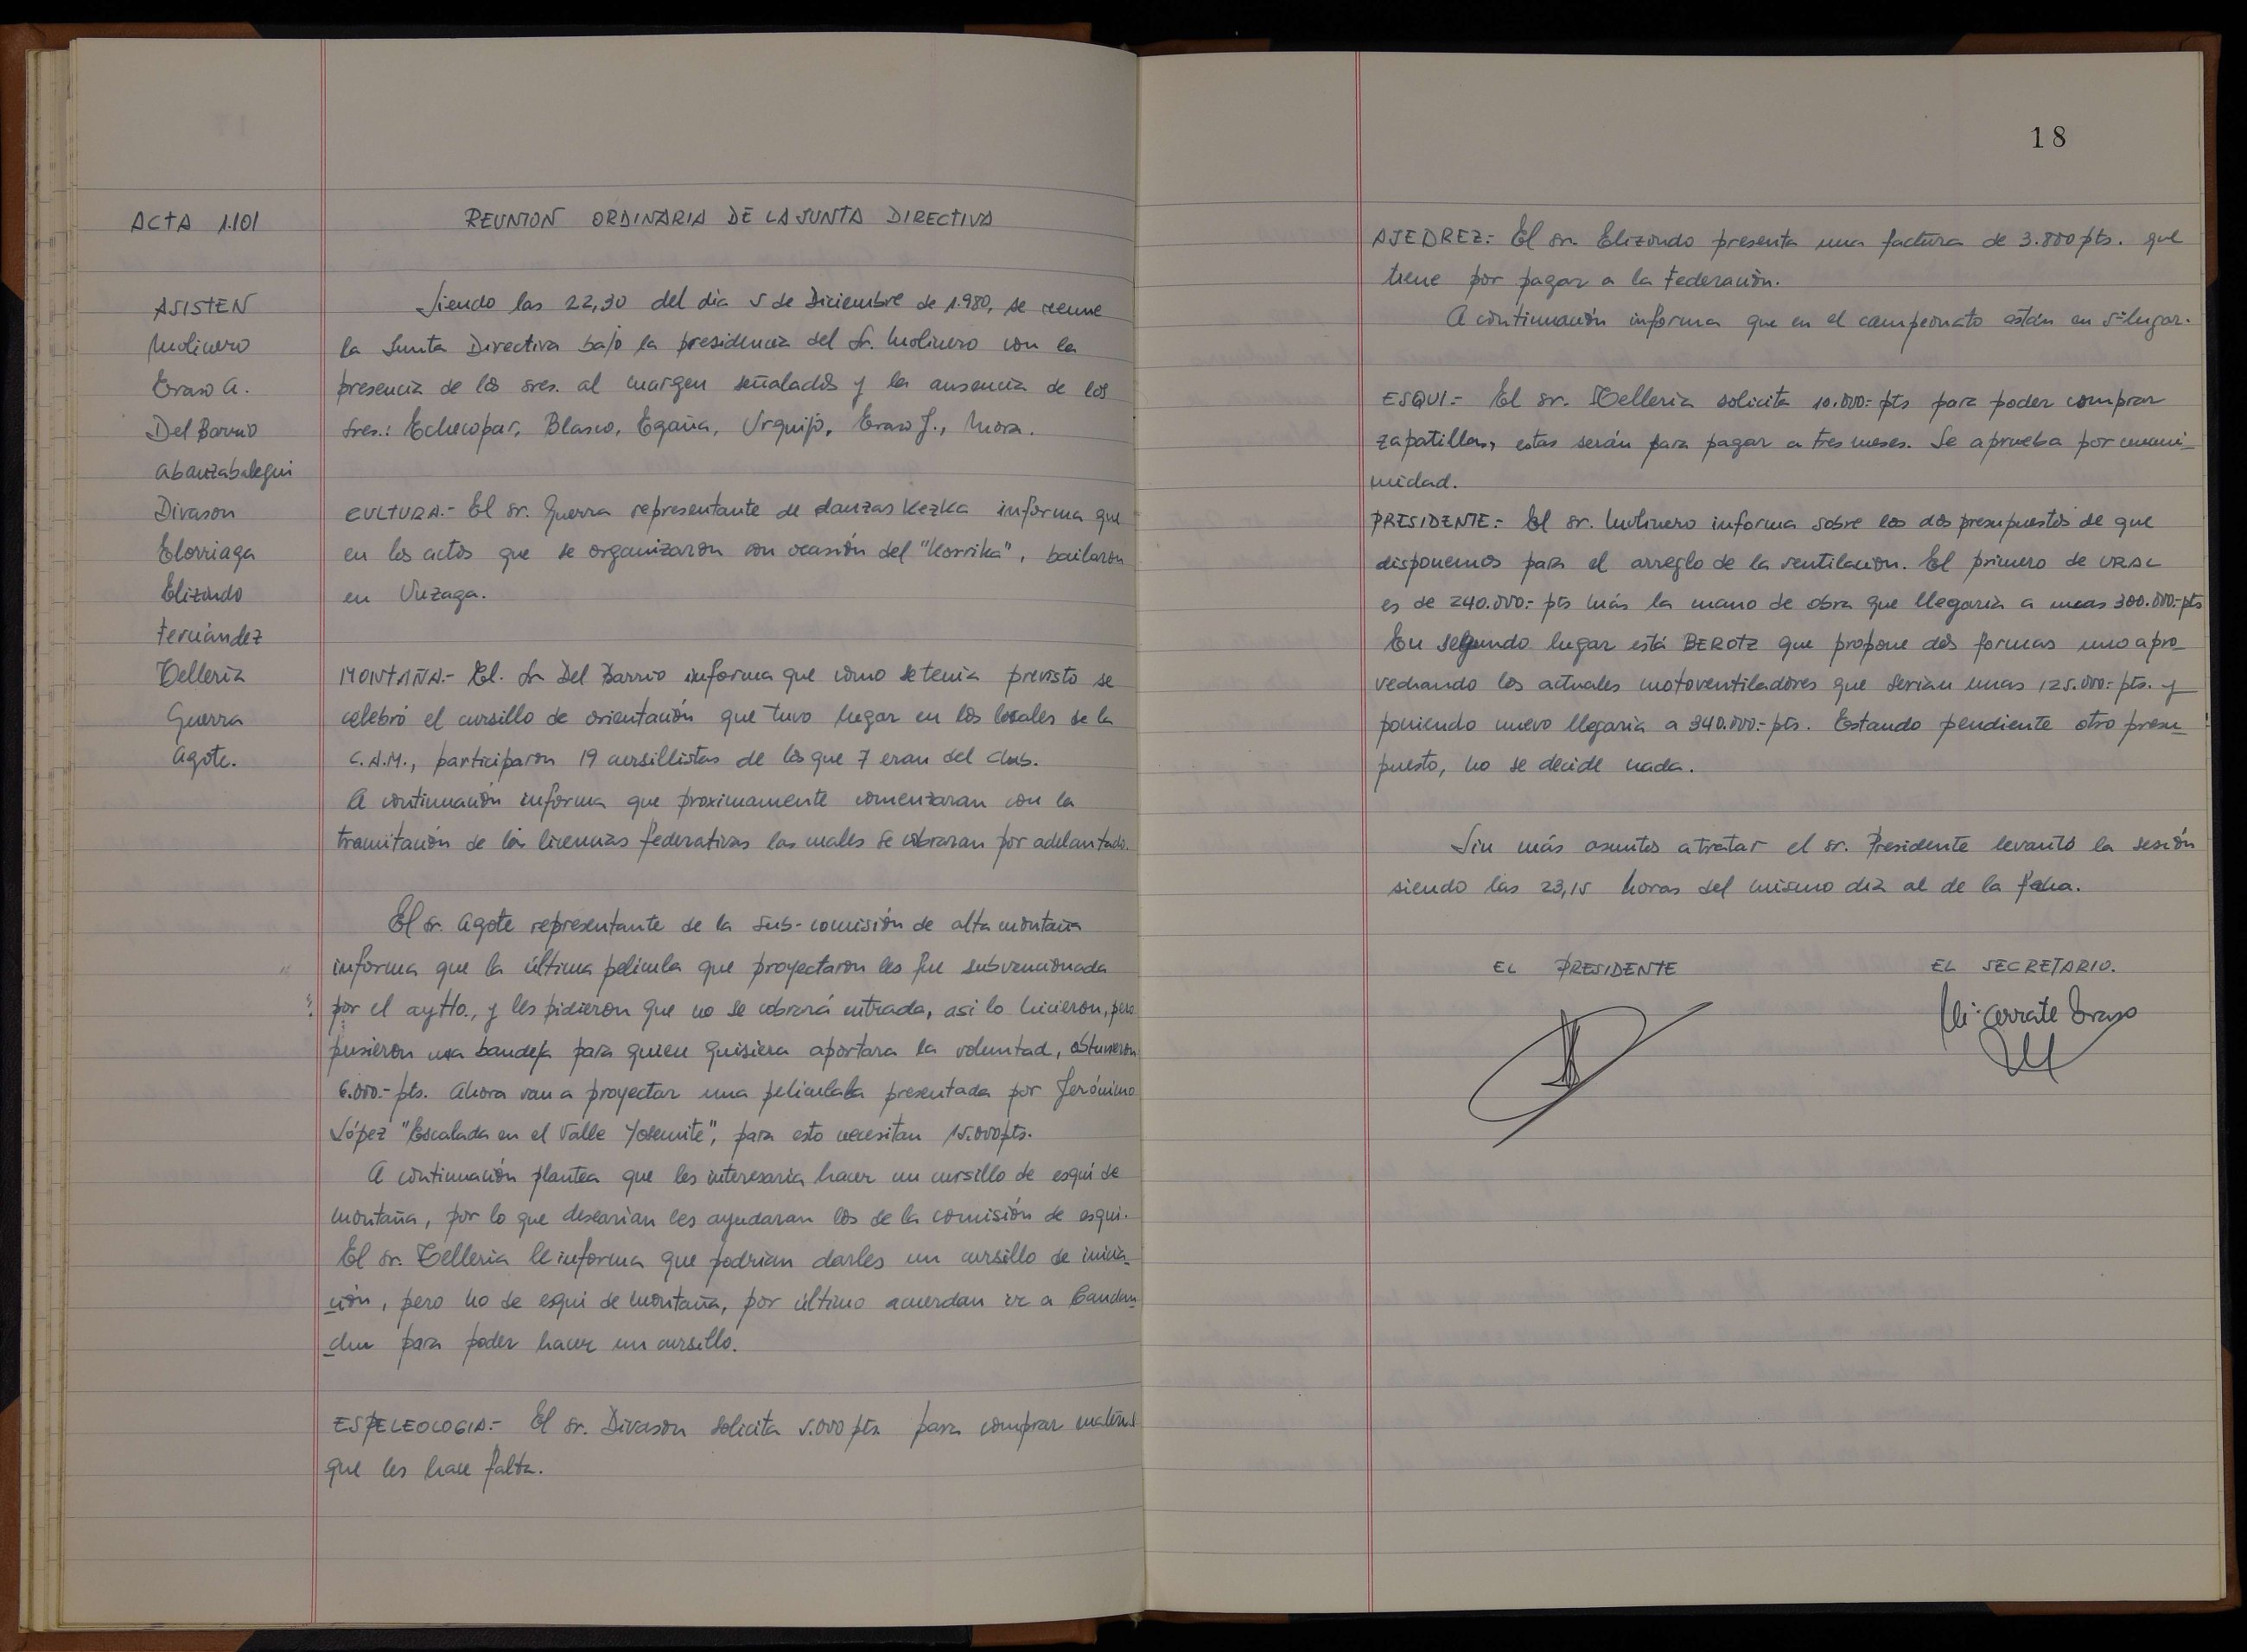 ACTA 1.101
REUNION ORDINARIA DE LA JUNTA DIRECTIVA
ASISTEN
Molinero
Eraso A.
Del Barrio
Abanzabalegui
Divason
Elorriaga
Elizondo
Fernández
Telleria
Guerra
Agote.
Siendo las 22,30 del dia 5 de Diciembre de 1.980, se reune
la Junta Directiva bajo la presidencia del Sr. Molinero con la
presencia de los sres. al margen señalados y la ausencia de los
sres.: Echecopar, Blasco, Egaña, Urquijo, Eraso J., Mora.
CULTURA.- El sr. Guerra representante de danzas Kezka informa que
en los actos que se organizaron con ocasión del "Korrika", bailaron
en Uuzaga.
MONTAÑA.- El. Sr Del Barrio informa que como se tenia previsto se
celebró el cursillo de orientación que tuvo lugar en los locales de la
C.A.M., participaron 19 cursillistas de los que 7 eran del club.
A continuación informa que proximamente comenzaran con la
tramitación de las licencias federativas las cuales se cobraran por adelantado.
El sr. Agote representante de la sub-comisión de alta montaña
informa que la última pelicula que proyectaron les fue subvencionada
por el aytto., y les pidieron que no se cobrará entrada, asi lo hicieron, pero
pusieron una bandeja para quien quisiera aportara la voluntad, obtuvieron
6.000.- pts. Ahora van a proyectar una pelicula presentada por Jerónimo
López "Escalada en el Valle Yosemite", para esto necesitan 15.000 pts.
A continuación plantea que les interesaria hacer un cursillo de esquí de
montaña, por lo que desearian les ayudaran los de la comisión de esqui.
El sr. Telleria le informa que podrian darles un cursillo de inicia-
ción, pero no de esqui de montaña, por último acuerdan ir a Candan-
chu para poder hacer un cursillo.
ESPELEOLOGIA.- El sr. Divason solicita 5.000 pts. para comprar material
que les hace falta.
18
AJEDREZ.- El sr. Elizondo presenta una factura de 3.800 pts. que
tiene por pagar a la Federación.
A continuación informa que en el campeonato están en 5º lugar.
ESQUI.- El sr. Telleria solicita 10.000.- pts para poder comprar
zapatillas, estas serán para pagar a tres meses. Se aprueba por unani-
midad.
PRESIDENTE.- El sr. Molinero informa sobre los dos presupuestos de que
disponemos para el arreglo de la ventilacion. El primero de URAL
es de 240.000.- pts más la mano de obra que llegaria a unas 300.000.- pts
En segundo lugar está BEROTZ que propone dos formas uno apro-
vechando los actuales motoventiladores que serian unas 125.000.- pts. y
poniendo nuevo llegaria a 340.000.- pts. Estando pendiente otro presu-
puesto, no se decide nada.
Sin más asuntos a tratar el sr. Presidente levantó la sesión
siendo las 23,15 horas del mismo dia al de la fecha.
EL PRESIDENTE
EL SECRETARIO.
Eraso